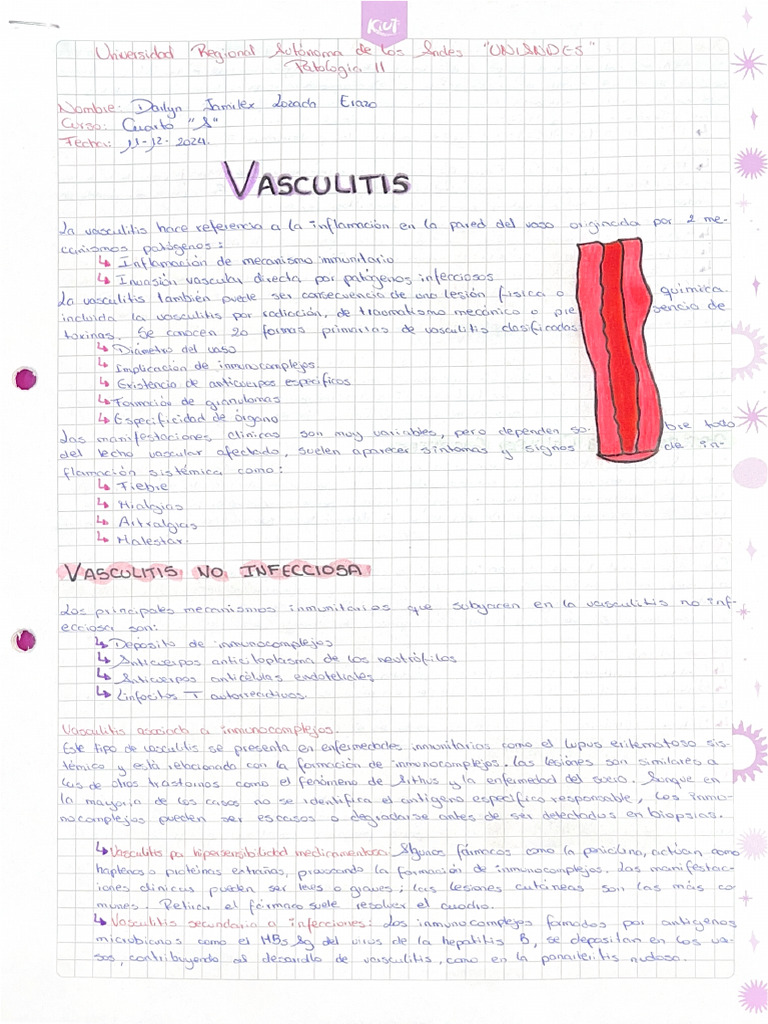 KIUT
Universidad Regional Autónoma de los Andes "UNIANDES"
Patología II
Nombre: Dailyn Jamilex Erazo
Curso: Cuarto "A"
Fecha: 11-12-2024.
VASCULITIS
La vasculitis hace referencia a la inflamación en la pared del vaso originada por 2 me-
canismos patógenos:
↳ Inflamación de mecanismo inmunitario
↳ Invasión vascular directa por patógenos infecciosos
La vasculitis también puede ser consecuencia de una lesión física o química
incluida la vasculitis por radiación, de traumatismo mecánico o pre sencia de
toxinas. Se conocen 20 formas primarias de vasculitis clasificadas
↳ Diámetro del vaso
↳ Implicación de inmunocomplejos
↳ Existencia de anticuerpos específicos
↳ Formación de granulomas
↳ Especificidad de órgano
Las manifestaciones clínicas son muy variables, pero dependen so- bre todo
del lecho vascular afectado, suelen aparecer síntomas y signos de in-
flamación sistémica como:
↳ Fiebre
↳ Mialgias
↳ Artralgias
↳ Malestar.
VASCULITIS NO INFECCIOSA
Los principales mecanismos inmunitarios que subyacen en la vasculitis no inf-
ecciosa son:
↳ Deposito de inmunocomplejos
↳ Anticuerpos anticitoplasma de los neutrófilos
↳ Anticuerpos anticélulas endoteliales
↳ Linfocitos T autorreactivos.
Vasculitis asociada a inmunocomplejos.
Este tipo de vasculitis se presenta en enfermedades inmunitarias como el lupus eritematoso sis-
témico y está relacionada con la formación de inmunocomplejos. Las lesiones son similares a
las de otros trastornos como el fenómeno de Arthus y la enfermedad del suero. Aunque en
la mayoría de los casos no se identifica el antígeno específico responsable, los inmu-
nocomplejos pueden ser escasos o degradarse antes de ser detectados en biopsias.
↳ Vasculitis por hipersensibilidad medicamentosa: Algunos fármacos como la penicilina, actúan como
haptenos o proteínas extrañas, provocando la formación de inmunocomplejos. Las manifestac-
iones clínicas pueden ser leves o graves; las lesiones cutáneas son las más co
munes. Retirar el fármaco suele resolver el cuadro.
↳ Vasculitis secundaria a infecciones: Los inmunocomplejos formados por antígenos
microbianos como el HBsAg del virus de la hepatitis B, se depositan en los va-
sos, contribuyendo al desarrollo de vasculitis, como en la panarteritis nudosa.